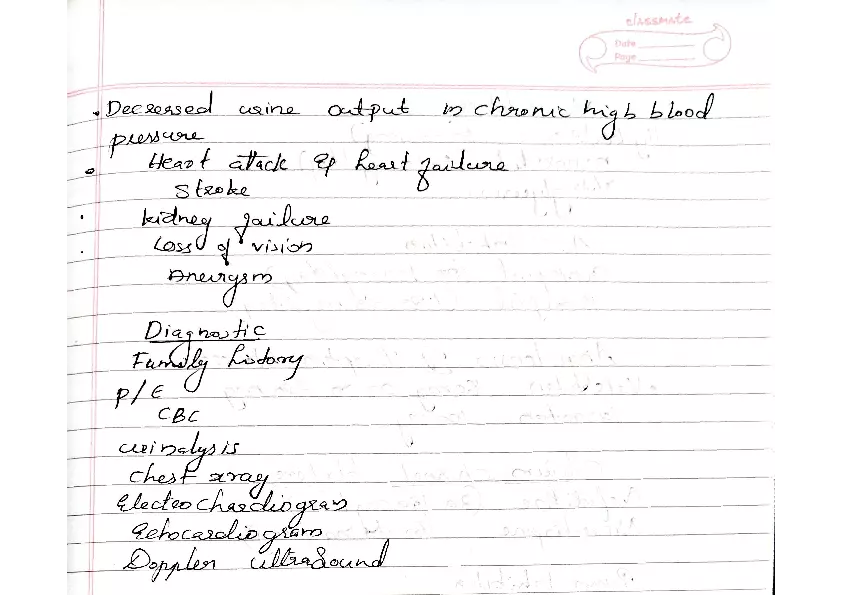 classmate
Date
Page
Decreased urine output in chronic high blood
pressure
Heart attack & heart failure
Stroke
kidney failure
Loss of vision
Aneurysm
Diagnostic
Family history
P/E
CBC
urinalysis
chest xray
Electrochardiogram
Echocardiogram
Doppler ultrasound